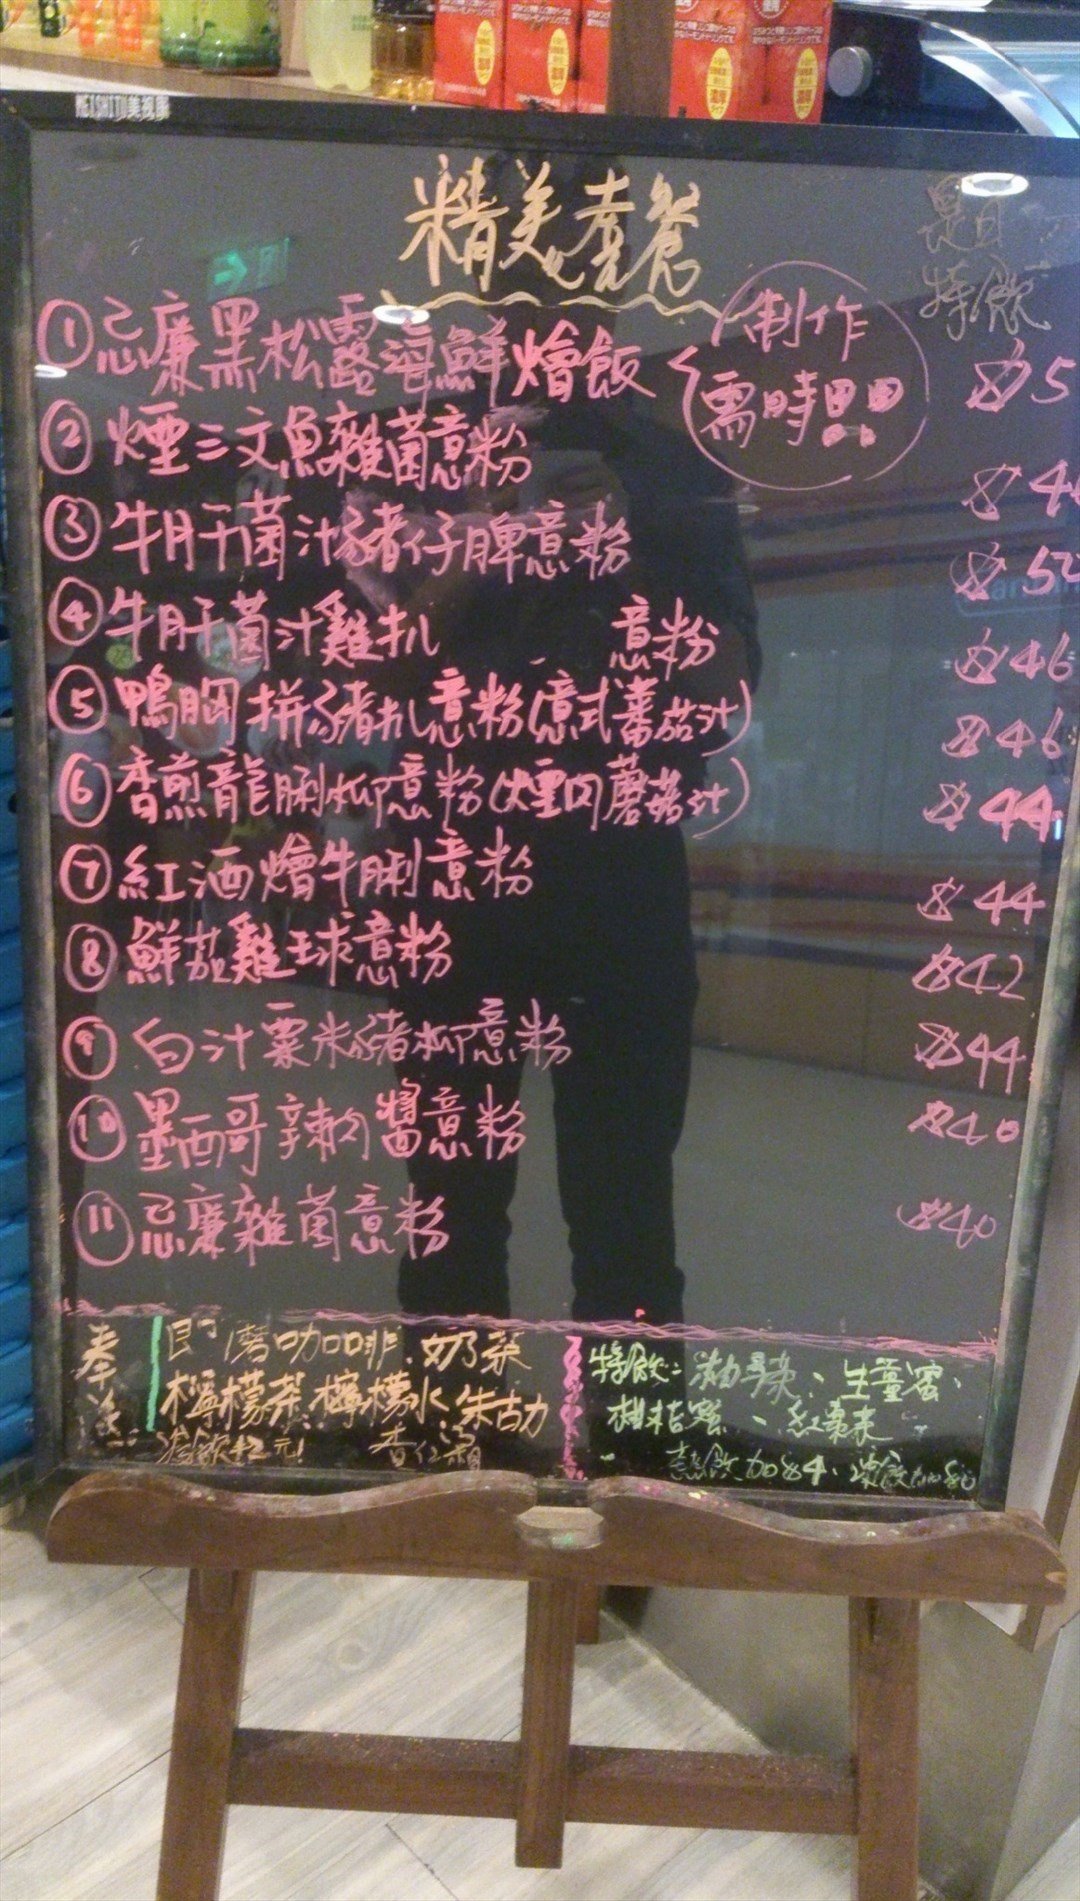 精美套餐
是日
特飲
①忌廉黑松露海鮮燴飯 制作 $5
需時
②煙三文魚雜菌意粉 $4
③牛肝菌汁豬仔脾意粉 $52
④牛肝菌汁雞扒 意粉 $46
⑤鴨胸拼豬扒意粉(意式蕃茄汁) $46
⑥香煎龍脷柳意粉(煙肉蘑菇汁) $44
⑦紅酒燴牛脷意粉 $44
⑧鮮茄雞球意粉 $42
⑨白汁粟米豬柳意粉 $44
⑩墨西哥辣肉醬意粉 $40
⑪忌廉雜菌意粉 $40
奉送
即磨咖啡.奶茶
檸檬茶.檸檬水.朱古力
凍飲+2元!
特飲: 生薑蜜、
桔蜜、紅棗
熱飲加$4、凍飲加
濃厚
濃厚
濃厚